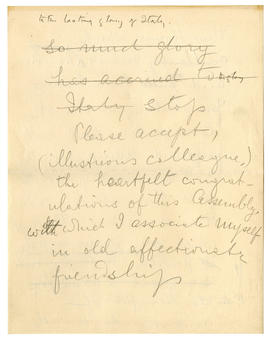 to the lasting glory of Italy.
So much glory
has accrued to
Italy stop
Please accept,
(illustrious colleague,)
the heartfelt congrat-
ulations of this Assembly,
with which I associate myself
in old affectionate
friendship